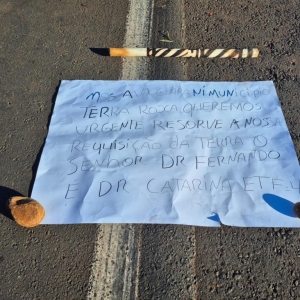 TERRA ROXA QUEREMOS
URGENTE RESORVE A NOSA
REQUISIÇÃO DA TERRA O
SENDOR DR FERNANDO
E DR CATARINA